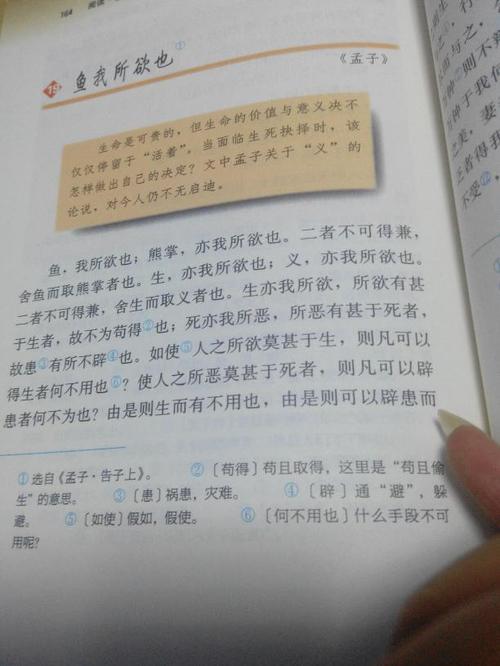 164 阅读
19 鱼我所欲也①
《孟子》
生命是可贵的，但生命的价值与意义决不
仅仅停留于“活着”。当面临生死抉择时，该
怎样做出自己的决定？文中孟子关于“义”的
论说，对今人仍不无启迪。
鱼，我所欲也；熊掌，亦我所欲也。二者不可得兼，
舍鱼而取熊掌者也。生，亦我所欲也；义，亦我所欲也。
二者不可得兼，舍生而取义者也。生亦我所欲，所欲有甚
于生者，故不为苟得②也；死亦我所恶，所恶有甚于死者，
故患③有所不辟④也。如使⑤人之所欲莫甚于生，则凡可以
得生者何不用也⑥？使人之所恶莫甚于死者，则凡可以辟
患者何不为也？由是则生而有不用也，由是则可以辟患而
①选自《孟子·告子上》。 ②〔苟得〕苟且取得，这里是“苟且偷
生”的意思。 ③〔患〕祸患，灾难。 ④〔辟〕通“避”，躲
避。 ⑤〔如使〕假如，假使。 ⑥〔何不用也〕什么手段不可
用呢？